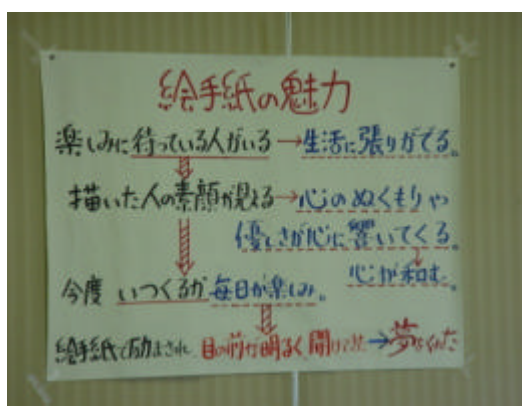 絵手紙の魅力
楽しみに待っている人がいる→生活に張りがでる。
描いた人の素顔が見える→心のぬくもりや
優しさが心に響いてくる。
心が和む。
今度 いつくるか 毎日が楽しみ。
絵手紙で励まされ 目の前が明るく開けてきた→夢